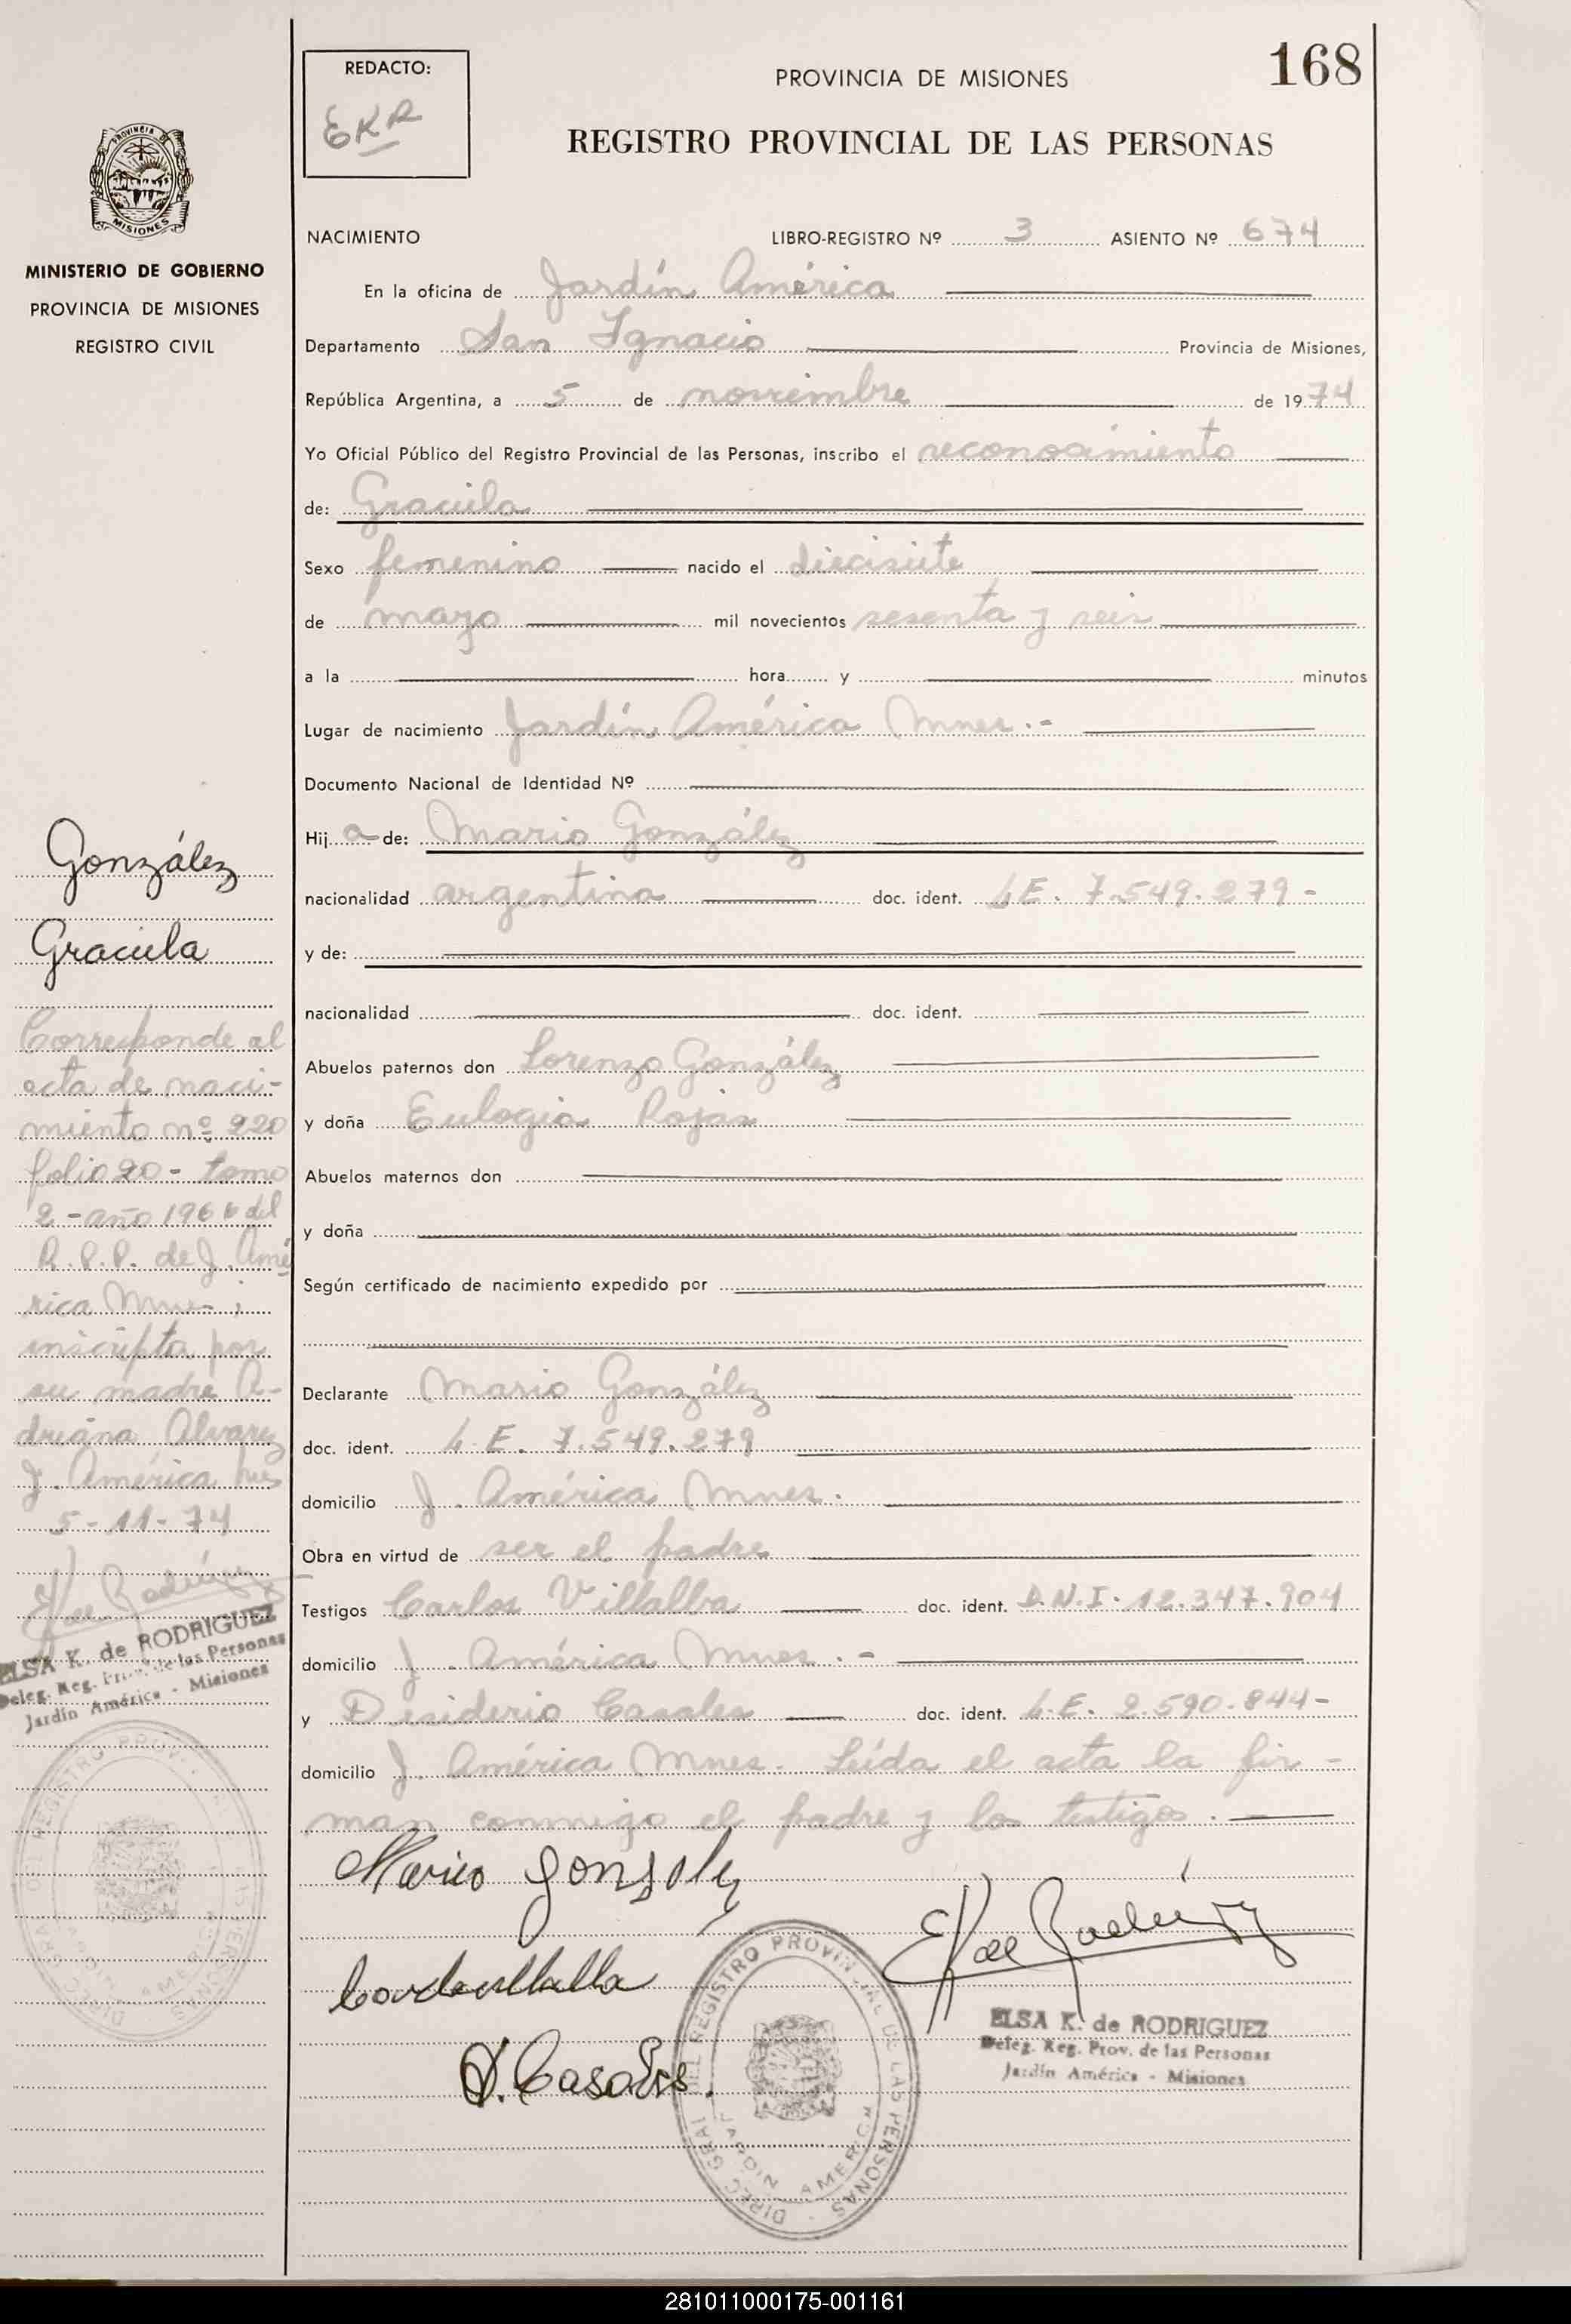 168
REDACTO:
EKR
PROVINCIA DE MISIONES
REGISTRO PROVINCIAL DE LAS PERSONAS
MISIONES
MINISTERIO DE GOBIERNO
PROVINCIA DE MISIONES
REGISTRO CIVIL
NACIMIENTO LIBRO-REGISTRO Nº 3 ASIENTO Nº 674
En la oficina de Jardín América
Departamento San Ignacio Provincia de Misiones,
República Argentina, a 5 de noviembre de 1974
Yo Oficial Público del Registro Provincial de las Personas, inscribo el reconocimiento
de: Graciela
Sexo femenino nacido el diecisiete
de mayo mil novecientos sesenta y seis
a la hora y minutos
Lugar de nacimiento Jardín América Mnes.-
Documento Nacional de Identidad Nº
Hij a de: Mario González
nacionalidad argentina doc. ident. L.E. 7.549.279-
y de:
nacionalidad doc. ident.
Abuelos paternos don Lorenzo González
y doña Eulogia Rojas
Abuelos maternos don
y doña
Según certificado de nacimiento expedido por
Declarante Mario González
doc. ident. L.E. 7.549.279
domicilio J. América Mnes.
Obra en virtud de ser el padre
Testigos Carlos Villalba doc. ident. D.N.I. 12.347.904
domicilio J. América Mnes.-
y Desiderio Casales doc. ident. L.E. 2.590.844-
domicilio J. América Mnes. Leída el acta la fir-
man conmigo el padre y los testigos.
Mario Gonzalez
D. Casales.
ELSA K. de RODRIGUEZ
Deleg. Reg. Prov. de las Personas
Jardín América - Misiones
DIREC. GRAL. DEL REGISTRO PROVINCIAL DE LAS PERSONAS
JARDIN AMERICA
González
Graciela
Corresponde al
acta de naci-
miento nº 220
folio 20- tomo
2-año 1966 del
R.P.P. de J. Amé
rica Mnes;
inscripta por
su madre A-
driana Alvarez
J. América Mes
5-11-74
ELSA K. de RODRIGUEZ
Deleg. Reg. Prov. de las Personas
Jardín América - Misiones
281011000175-001161